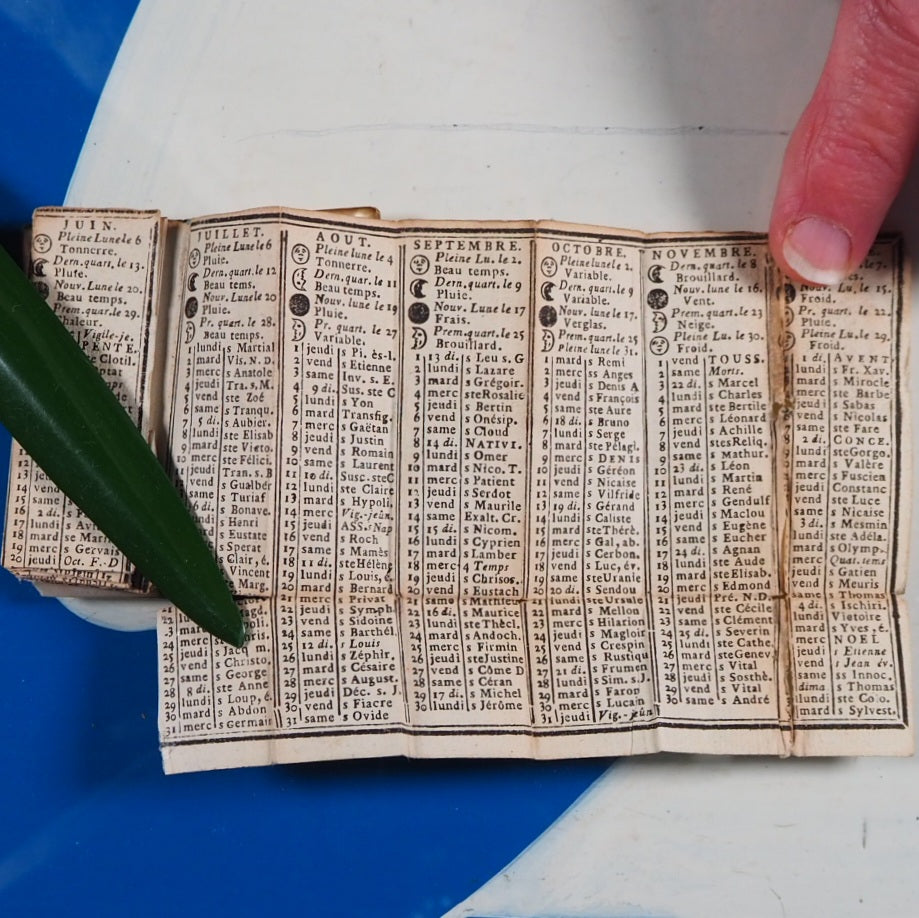 JUIN.
Pleine Lune le 6
Tonnerre.
Dern. quart. le 13.
Pluie.
Nouv. Lune le 20.
Beau temps.
Prem. quar. le 29.
Vigile-je.
PENTE.
ste Clotil.
jeudi
vend
same
2 di.
lundi
mard
merc s Gervais
20 jeudi Oct. F. D
JUILLET.
Pleine Lune le 6
Pluie.
Dern. quart. le 12
Beau tems.
Nouv. Lune le 20
Pluie.
Pr. quart. le 28.
Beau temps.
1 lundi s Martial
2 mard Vis. N. D.
3 merc s Anatole
4 jeudi Tra. s, M.
5 vend ste Zoé
6 same s Tranqu.
7 5 di. s Aubier.
8 lundi ste Elisab
mard ste Victo.
merc ste Félici.
jeudi Tran. s, B
s Gualbér
s Turiaf
s Bonave.
s Henri
s Eustate
s Sperat
s Clair, é.
s Vincent
s Jacq m.
s Christo.
26 vend s George
27 same ste Anne
28 8 di. s Loup, é.
29 lundi s Abdon
30 mard s Germain
31 merc
AOUT.
Pleine lune le 4
Tonnerre.
Dern. quar. le 11
Beau temps.
Nouv. lune le 19
Pluie.
Pr. quart. le 27
Variable.
1 jeudi s Pi. ès-l.
2 vend s Etienne
3 same Inv. s, E.
4 9 di. Sus. ste C
5 lundi s Yon
6 mard Transfig.
7 merc s Gaëtan
8 jeudi s Justin
9 vend s Romain
10 same s Laurent
11 10 di. Susc. ste C
12 lundi ste Claire
13 mard s Hypoli.
14 merc Vig.-jeûn.
15 jeudi ASS. s Nap
16 vend s Roch
17 same s Mamès
18 11 di. ste Hélène
19 lundi s Louis, é.
20 mard s Bernard
21 merc s Privat
22 jeudi s Symph.
23 vend s Sidoine
24 same s Barthél.
25 12 di. s Louis
26 lundi s Zéphir.
27 mard s Césaire
28 merc s August.
29 jeudi Déc. s. J.
30 vend s Fiacre
31 same s Ovide
SEPTEMBRE.
Pleine Lu. le 2.
Beau temps.
Dern. quart. le 9
Pluie.
Nouv. Lune le 17
Frais.
Prem. quart. le 25
Brouillard.
1 13 di. s Leu s. G
2 lundi s Lazare
3 mard s Grégoir.
4 merc ste Rosalie
5 jeudi s Bertin
6 vend s Onésip.
7 same s Cloud
8 14 di. NATIVI.
9 lundi s Omer
10 mard s Nico. T.
11 merc s Patient
12 jeudi s Serdot
13 vend s Maurile
14 same Exalt. Cr.
15 15 di. s Nicom.
16 lundi s Cyprien
17 mard s Lamber
18 merc 4 Temps
19 jeudi s Chrisos.
20 vend s Eustach
21 same s Matthieu
22 16 di. s Maurice
23 lundi ste Thècl.
24 mard s Andoch.
25 merc s Firmin
26 jeudi ste Justine
27 vend s Côme D
28 same s Céran
29 17 di. s Michel
30 lundi s Jérôme
OCTOBRE.
Pleine lune le 2.
Variable.
Dern. quart. le 9
Variable.
Nouv. lune le 17.
Verglas.
Prem. quart. le 25
Pleine lune le 31.
1 mard s Remi
2 merc ss Anges
3 jeudi s Denis A
4 vend s François
5 same ste Aure
6 18 di. s Bruno
7 lundi s Serge
8 mard ste Pélagi.
9 merc s DENIS
10 jeudi s Géréon
11 vend s Nicaise
12 same s Vilfride
13 19 di. s Gérand
14 lundi s Caliste
15 mard ste Thérè.
16 merc s Gal, ab.
17 jeudi s Cerbon.
18 vend s Luc, év.
19 same ste Uranie
20 20 di. s Sendou
21 lundi ste Ursule
22 mard s Mellon
23 merc s Hilarion
24 jeudi s Magloir
25 vend s Crespin
26 same s Rustiqu
27 21 di. s Frumen
28 lundi s Sim. s. J.
29 mard s Faron
30 merc s Lucain
31 jeudi Vig.-jeûn
NOVEMBRE.
Dern. quart. le 8
Brouillard.
Nouv. lune le 16.
Vent.
Prem. quart. le 23
Neige.
Pleine Lu. le 30.
Froid.
1 vend TOUSS.
2 same Morts.
3 22 di. s Marcel
4 lundi s Charles
5 mard ste Bertile
6 merc s Léonard
7 jeudi s Achille
8 vend stes Reliq.
9 same s Mathur.
10 23 di. s Léon
11 lundi s Martin
12 mard s René
13 merc s Gendulf
14 jeudi s Maclou
15 vend s Eugène
16 same s Eucher
17 24 di. s Agnan
18 lundi ste Aude
19 mard ste Elisab.
20 merc s Edmond
21 jeudi Pré. N.D.
22 vend ste Cécile
23 same s Clément
24 25 di. s Severin
25 lundi ste Cathe.
26 mard ste Genev.
27 merc s Vital
28 jeudi s Sosthè.
29 vend s Vital
30 same s André
le 7.
Nouv. Lu. le 15.
Froid.
Pr. quart. le 22.
Pluie.
Pleine Lu. le 29.
Froid.
1 1 di. AVENT
2 lundi s Fr. Xav.
3 mard s Mirocle
4 merc ste Barbe
5 jeudi s Sabas
6 vend s Nicolas
7 same ste Fare
8 2 di. CONCE.
lundi ste Gorgo.
mard s Valère
merc s Fuscien
jeudi Constanc
vend ste Luce
same s Nicaise
3 di. s Mesmin
lundi ste Adéla.
mard s Olymp.
merc Quat. tems
jeudi s Gatien
vend s Meuris
same s Thomas
4 di. s Tschiri.
lundi Victoire
mard s Yves, é.
merc NOEL
jeudi s Etienne
vend s Jean év.
same ss Innoc.
dima s Thomas
lund ste Colo.
mard s Sylvest.